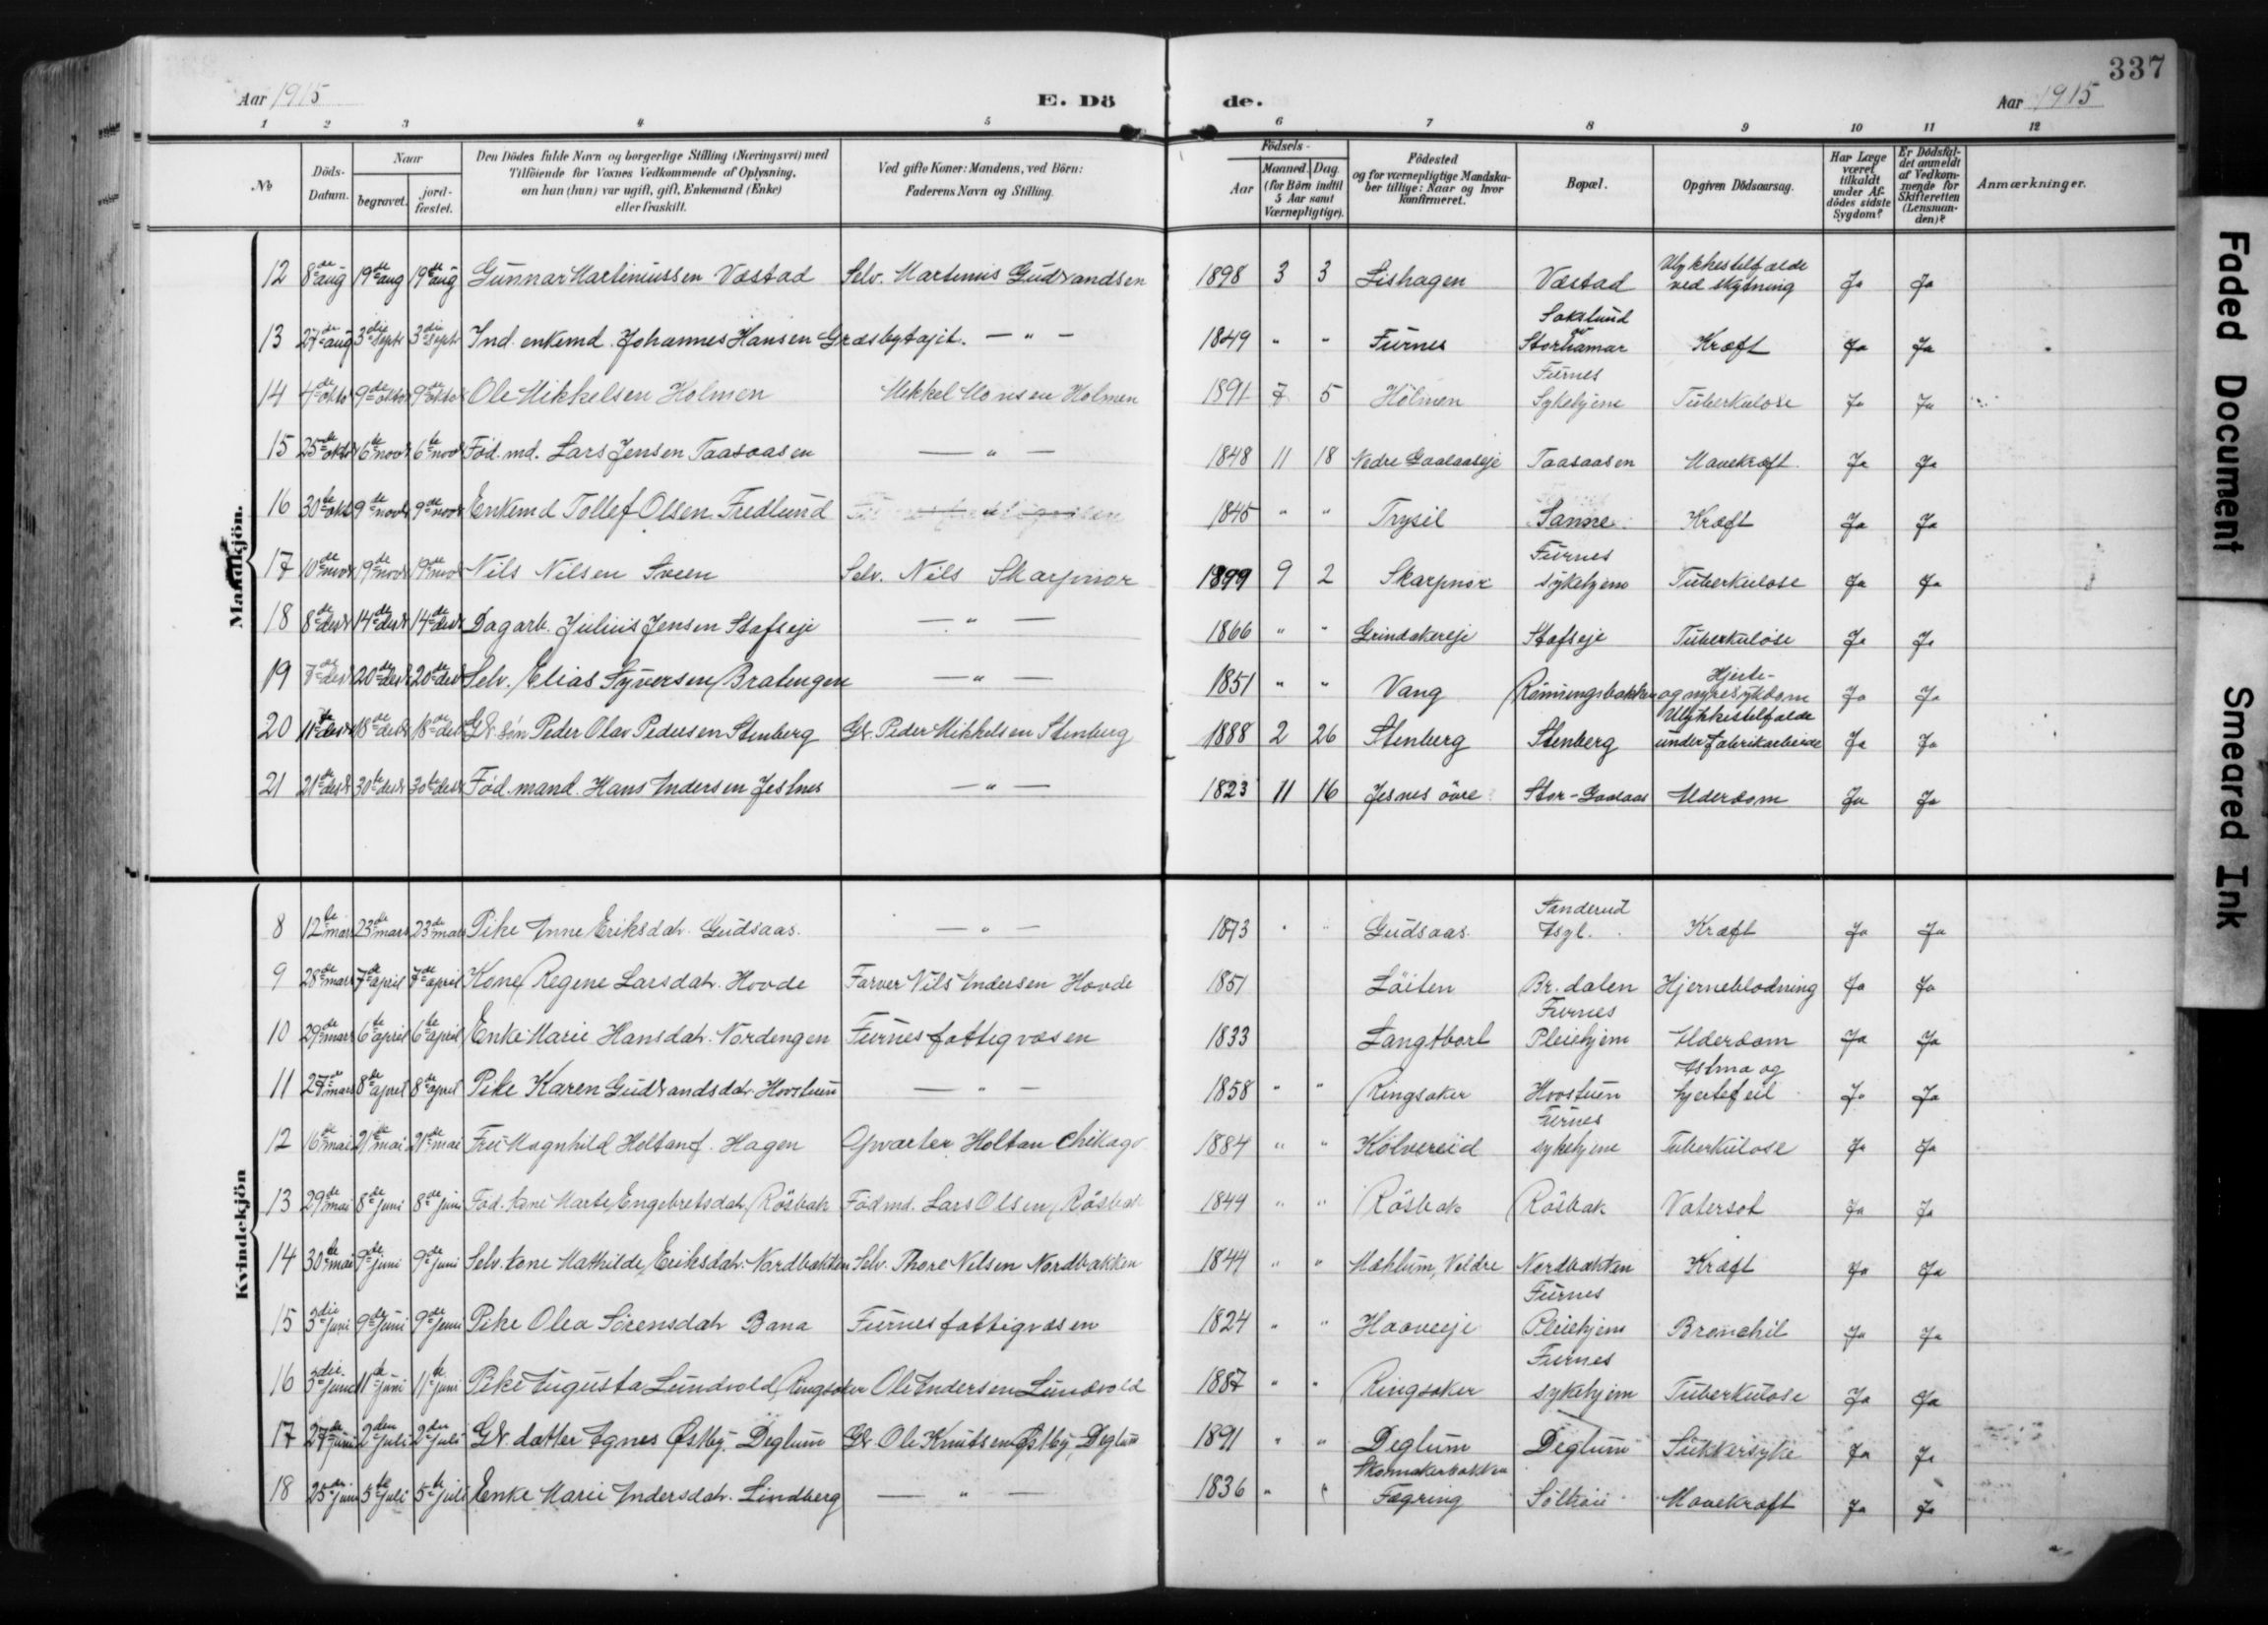 337
Aar 1915 E. Dö de. Aar 1915
1 2 3 4 5 6 7 8 9 10 11 12
No Döds-Datum. Naar begravet. jordfæstet. Den Dödes fulde Navn og borgerlige Stilling (Næringsvei) med Tilföiende for Voxnes Vedkommende af Oplysning, om han (hun) var ugift, gift, Enkemand (Enke) eller fraskilt. Ved gifte Koner: Mandens, ved Börn: Faderens Navn og Stilling. Födsels- Aar Maaned. Dag. (for Börn indtil 5 Aar samt Værnepligtige). Födested og for værnepligtige Mandskaber tillige: Naar og hvor konfirmeret. Bopæl. Opgiven Dödsaarsag. Har Læge været tilkaldt under Afdödes sidste Sygdom? Er Dödsfaldet anmeldt af Vedkommende for Skifteretten (Lensmanden)? Anmærkninger.
Mandkjön.
12 8de aug 19de aug 19de aug Gunnar Martiniussen Væstad Selv. Martinius Gudbrandsen 1898 3 3 Lishagen Væstad Ulykkestilfælde ved skytning Ja Ja
13 27de aug 3die sept 3die sept Ind. enkemd. Johannes Hansen Græsbytajet. — " — 1849 " " Furnes Sakslund av Storhamar Kræft Ja Ja
14 4de oktbr 9de oktbr 9de oktbr Ole Mikkelsen Holmen Mikkel Monsen Holmen 1891 7 5 Holmen Furnes Sykehjem Tuberkulose Ja Ja
15 25de oktbr 6te novbr 6te novbr Föd. md. Lars Jensen Taasaasen — " — 1848 11 18 Nedre Gaalaaseje Taasaasen Mavekræft Ja Ja
16 30te oktbr 9de novbr 9de novbr Enkemd Tollef Olsen Fredlund — " — 1845 " " Trysil Sanne Kræft Ja Ja
17 10de novbr 19de novbr 19de novbr Nils Nilsen Sveen Selv. Nils Skarpnor 1899 9 2 Skarpnor Furnes sykehjem Tuberkulose Ja Ja
18 8de desbr 14de desbr 14de desbr Dagarb. Julius Jensen Stafseje — " — 1866 " " Grindakereje Stafseje Tuberkulose Ja Ja
19 7de desbr 20de desbr 20de desbr Selv. Elias Syversen Bratengen — " — 1851 " " Vang Rönningsbakken Hjerte- og nyresykdom Ja Ja
20 11te desbr 18de desbr 18de desbr Gbr. sön Peder Olav Pedersen Stenberg Gbr. Peder Mikkelsen Stenberg 1888 2 26 Stenberg Stenberg Ulykkestilfælde under fabrikarbeide Ja Ja
21 21de desbr 30te desbr 30te desbr Föd. mand. Hans Andersen Jesnes — " — 1823 11 16 Jesnes övre Stor-Gaalaas Alderdom Ja Ja
Kvindekjön
8 12te mars 23de mars 23de mars Pike Anne Eriksdatr. Gudsaas. — " — 1873 " " Gudsaas Sanderud Asyl. Kræft Ja Ja
9 28de mars 7de april 7de april Kone Regine Larsdatr. Hovde Farver Nils Andersen Hovde 1851 Löiten Br. dalen Hjerneblodning Ja Ja
10 29de mars 6te april 6te april Enke Marie Hansdatr. Nordengen Furnes fattigvæsen 1833 Langtbort Furnes Pleiehjem Alderdom Ja Ja
11 27de mars 8de april 8de april Pike Karen Gudbrandsdatr. Hovstuen — " — 1858 " " Ringsaker Hovstuen Astma og hjertefeil Ja Ja
12 16de mai 21de mai 21de mai Fru Magnhild Holtan f. Hagen Opvarter Holtan Chikago 1884 " " Kolvereid Furnes sykehjem Tuberkulose Ja Ja
13 29de mai 8de juni 8de juni Föd. kone Marte Engebretsdatr. Rösbak Föd md. Lars Olsen Rösbak 1844 " " Rösbak Rösbak Vatersot Ja Ja
14 30te mai 9de juni 9de juni Selv. kone Mathilde Eriksdatr. Nordbakken Selv. Thore Nilsen Nordbakken 1844 " " Mæhlum, Veldre Nordbakken Kræft Ja Ja
15 3die juni 9de juni 9de juni Pike Olea Sörensdatr Bana Furnes fattigvæsen 1824 " " Haaveeje Furnes Pleiehjem Bronchit Ja Ja
16 3die juni 11te juni 11te juni Pike Augusta Lundvold Ringsaker Ole Andersen Lundvold 1887 " " Ringsaker Furnes sykehjem Tuberkulose Ja Ja
17 27de juni 2den juli 2den juli Gbr. datter Agnes Östby, Deglum Gbr. Ole Knutsen Östby, Deglum 1891 " " Deglum Deglum Sukkersyke Ja Ja
18 25de juni 5te juli 5te juli Enke Marie Andersdatr. Lindberg — " — 1836 " " Skomakerbakken Fagring Mavekræft Ja Ja
Faded Document Smeared Ink